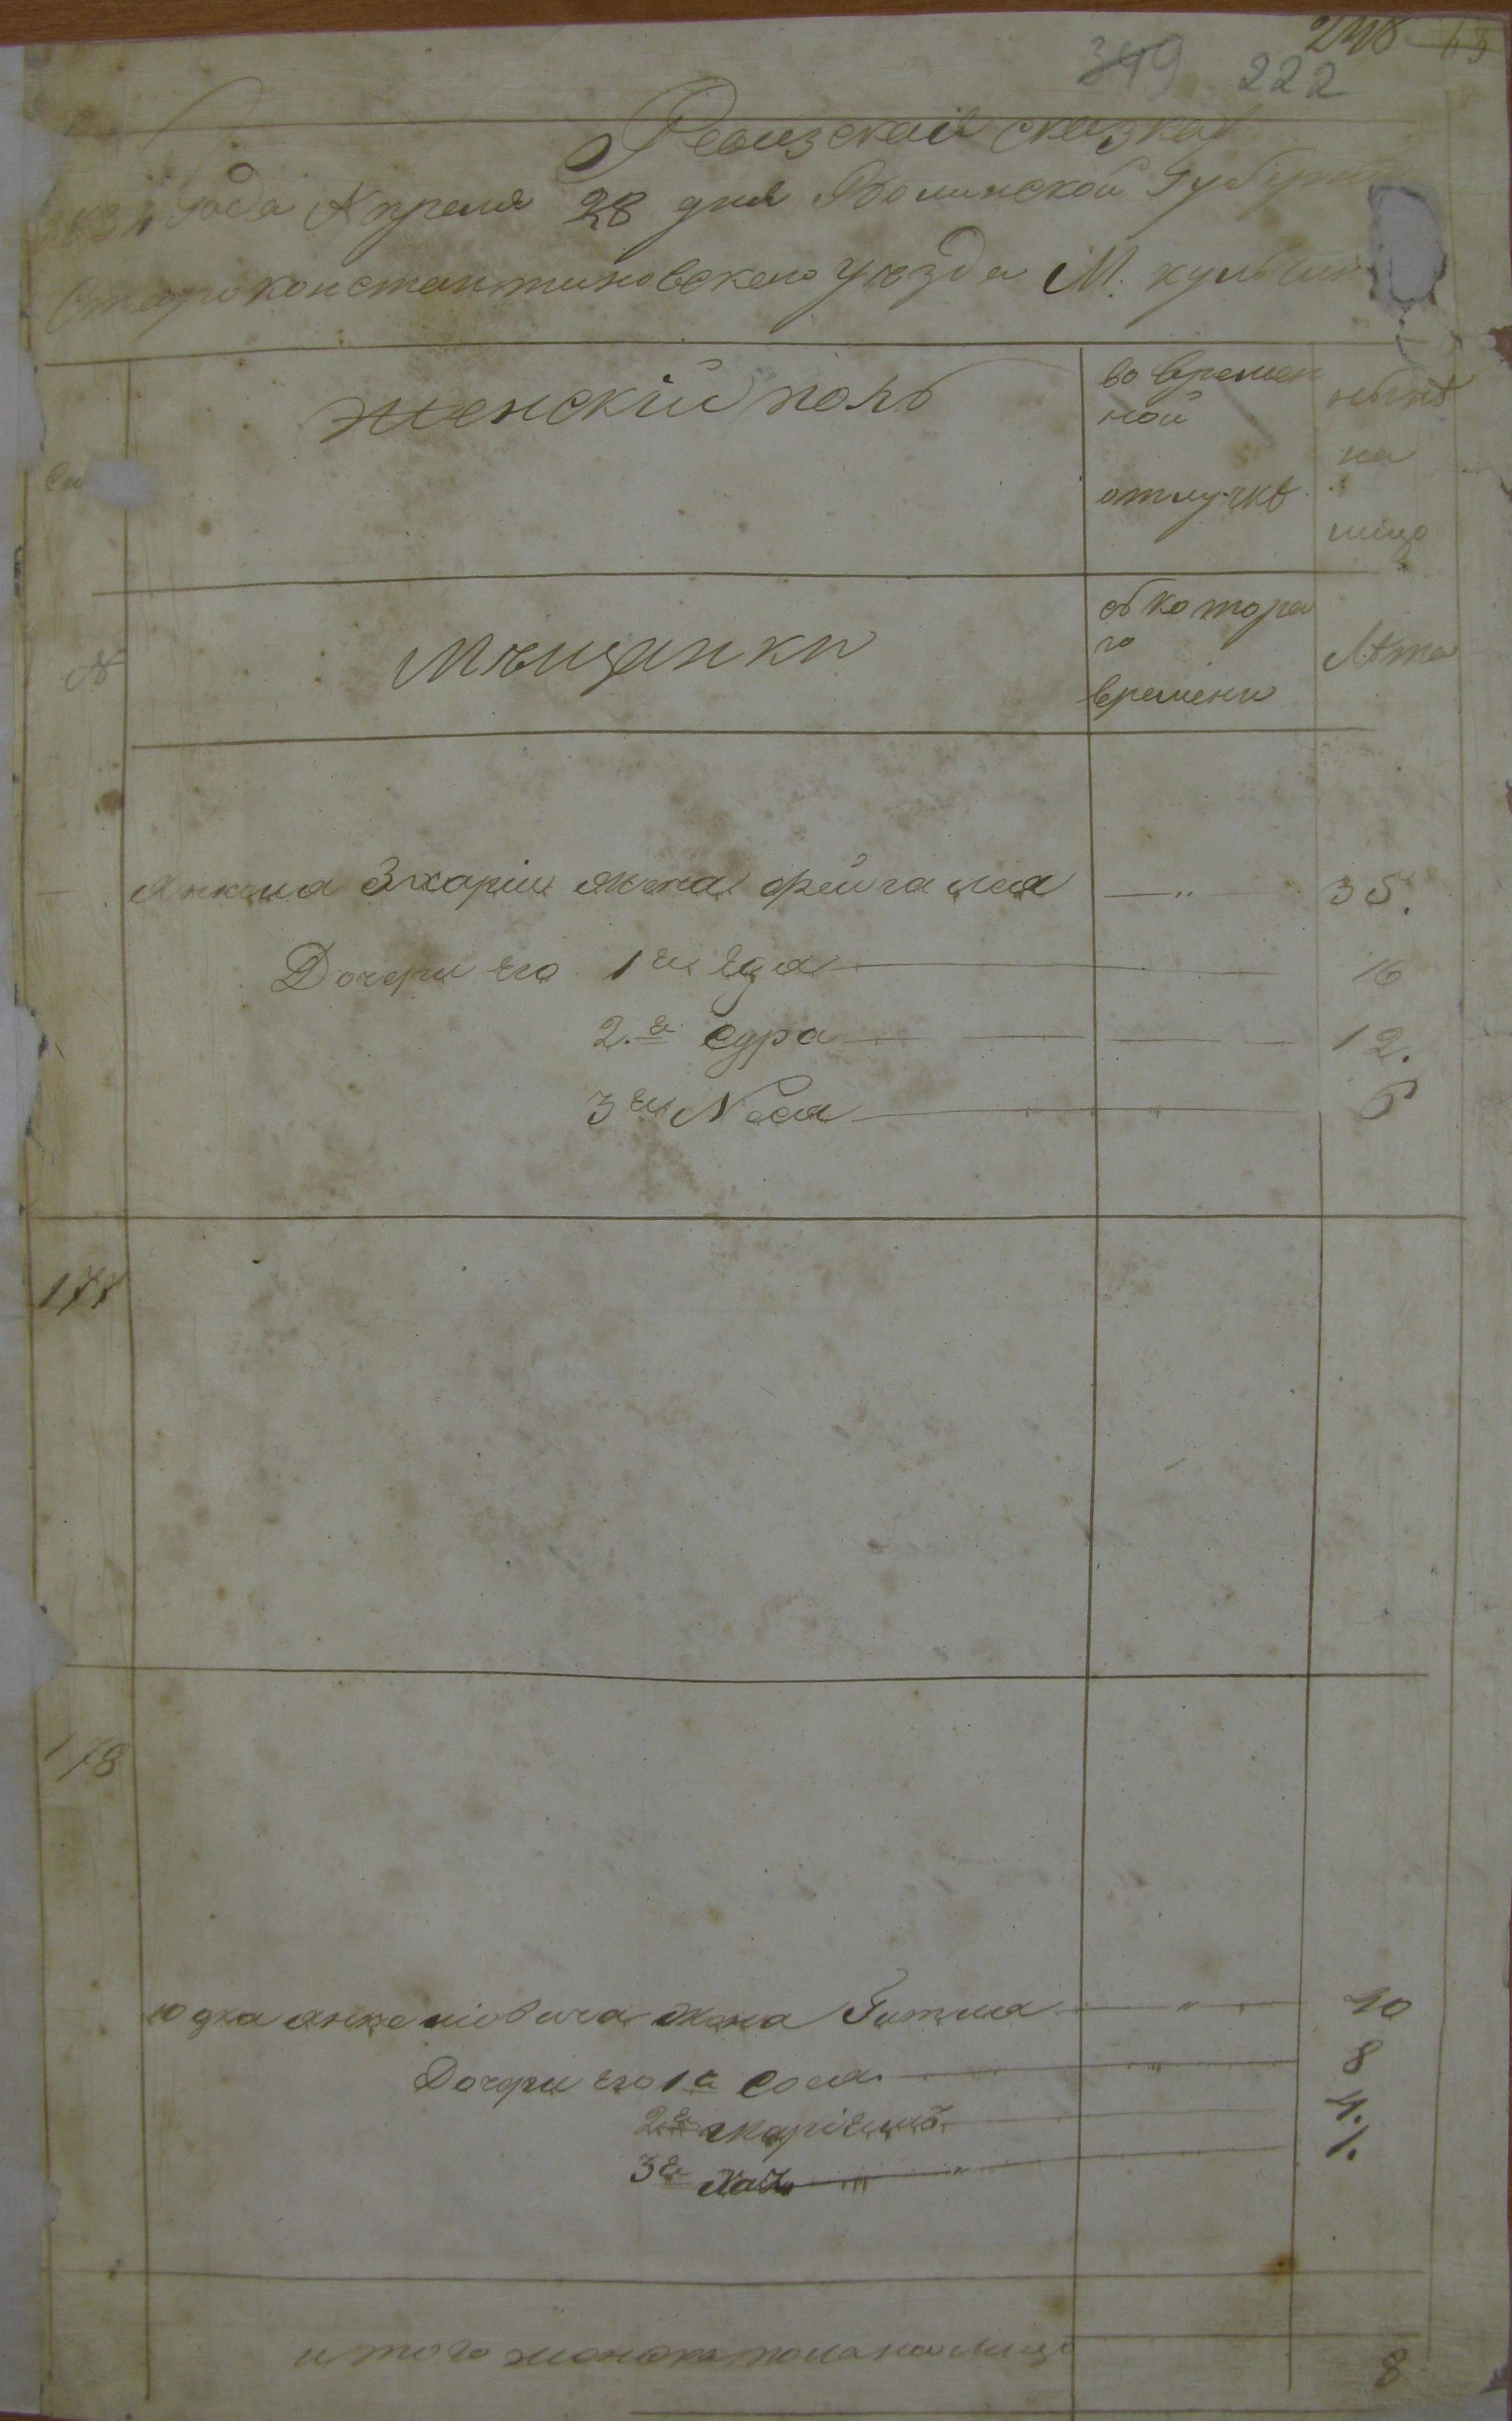 248 63
349 222
Ревизская сказка
1834 года Апреля 28 дня Волинской Губернии
Староконстантиновского уѣзда М. кульчин
женскій полъ
во времен
ной
отлучкѣ
нынѣ
на
лицо
№
Мѣщанки
съ котора
го
времени
Лѣта
Янкеля Зхаріи жена Фейга Лея — " — 35.
Дочери его 1я Ейдя 16
2.я Сура 12.
3я Neся 6
177
178
Юдка Янкеліовича жена Гитля — " — 40
Дочери его 1я Сося " 8
2я Маріемъ 4.
3я Хая " 1.
итого женска пола налицо
8